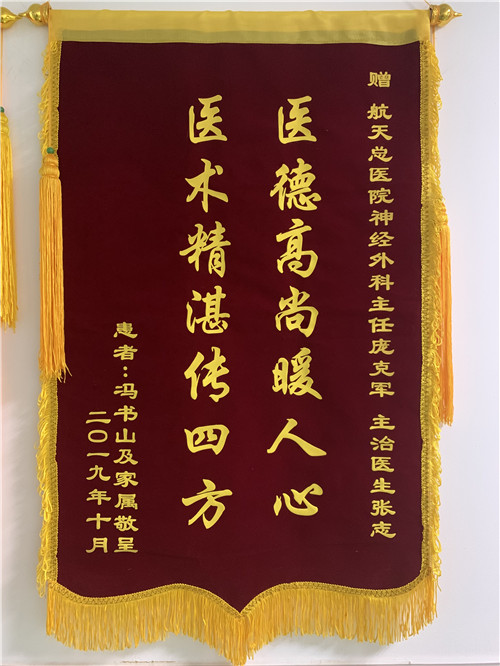 赠 航天总医院神经外科主任庞克军 主治医生张志
医德高尚暖人心
医术精湛传四方
患者：冯书山及家属敬呈
二〇一九年十月